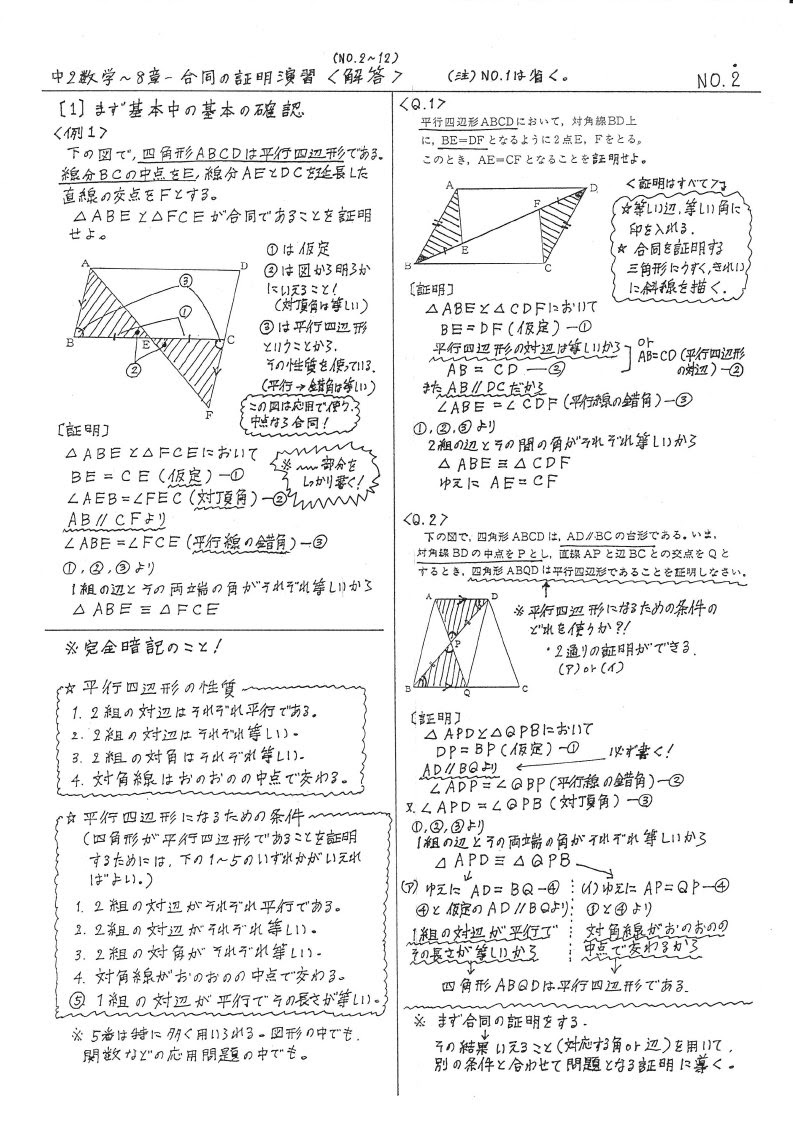 (NO.2~12)
中2数学~8章-合同の証明演習<解答> (注)NO.1は省く。
NO.2
[1]まず基本中の基本の確認
<例1>
下の図で,四角形ABCDは平行四辺形である。
線分BCの中点をE,線分AEとDCを延長した
直線の交点をFとする。
△ABEと△FCEが合同であることを証明
せよ。
①は仮定
②は図から明らか
にいえること!
(対頂角は等しい)
③は平行四辺形
ということから,
その性質を使っている.
(平行→錯角は等しい)
A
D
③
①
B
E
C
②
F
この図は応用で使う.
中点なら合同!
[証明]
△ABEと△FCEにおいて
BE=CE(仮定)-①
∠AEB=∠FEC(対頂角)-②
AB∥CFより
∠ABE=∠FCE(平行線の錯角)-③
①,②,③より
1組の辺とその両端の角がそれぞれ等しいから
△ABE≡△FCE
※〰部分を
しっかり書く!
※完全暗記のこと!
☆平行四辺形の性質
1. 2組の対辺はそれぞれ平行である。
2. 2組の対辺はそれぞれ等しい.
3. 2組の対角はそれぞれ等しい.
4. 対角線はおのおのの中点で交わる。
☆平行四辺形になるための条件
(四角形が平行四辺形であることを証明
するためには,下の1~5のいずれかがいえれ
ばよい。)
1. 2組の対辺がそれぞれ平行である。
2. 2組の対辺がそれぞれ等しい.
3. 2組の対角がそれぞれ等しい.
4. 対角線がおのおのの中点で交わる。
⑤ 1組の対辺が平行でその長さが等しい。
※5番は特に多く用いられる。図形の中でも,
関数などの応用問題の中でも。
<Q.1>
平行四辺形ABCDにおいて,対角線BD上
に,BE=DFとなるように2点E,Fをとる。
このとき,AE=CFとなることを証明せよ。
A
D
F
E
B
C
<証明はすべて>
☆等しい辺,等しい角に
印を入れる.
★合同を証明する
三角形にうすく,きれい
に斜線を描く.
[証明]
△ABEと△CDFにおいて
BE=DF(仮定)-①
平行四辺形の対辺は等しいから
AB=CD-②
or
AB=CD(平行四辺形
の対辺)-②
またAB∥DCだから
∠ABE=∠CDF(平行線の錯角)-③
①,②,③より
2組の辺とその間の角がそれぞれ等しいから
△ABE≡△CDF
ゆえに AE=CF
<Q.2>
下の図で,四角形ABCDは,AD∥BCの台形である。いま,
対角線BDの中点をPとし,直線APと辺BCとの交点をQと
するとき,四角形ABQDは平行四辺形であることを証明しなさい。
A
D
P
B
Q
C
※平行四辺形になるための条件の
どれを使うか?!
・2通りの証明ができる.
(ア)or(イ)
[証明]
△APDと△QPBにおいて
DP=BP(仮定)-①
AD∥BQより
必ず書く!
∠ADP=∠QBP(平行線の錯角)-②
又,∠APD=∠QPB(対頂角)-③
①,②,③より
1組の辺とその両端の角がそれぞれ等しいから
△APD≡△QPB
(ア)ゆえに AD=BQ-④
④と仮定のAD∥BQより
1組の対辺が平行で
その長さが等しいから
(イ)ゆえに AP=QP-④
①と④より
対角線がおのおのの
中点で交わるから
四角形ABQDは平行四辺形である.
※まず合同の証明をする.
その結果いえること(対応する角or辺)を用いて,
別の条件と合わせて問題となる証明に導く。